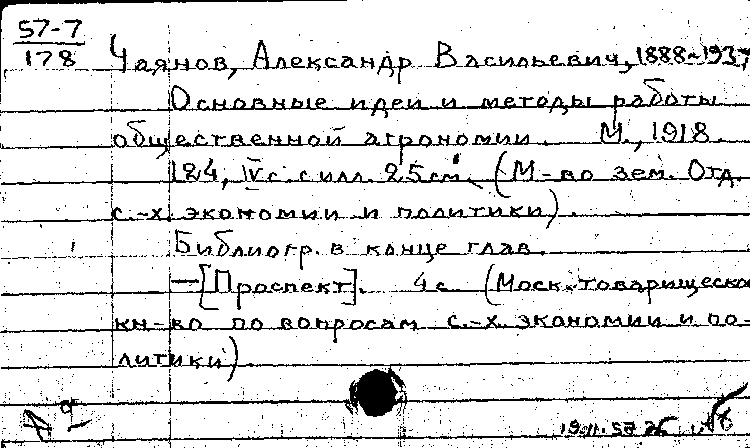 57-7
178
Чаянов, Александр Васильевич, 1888-1937
Основные идеи и методы работы
общественной агрономии. М., 1918.
124, IV с. с илл. 25 см. (М-во зем. Отд.
с.-х. экономии и политики).
Библиогр. в конце глав.
—[Проспект]. 4 с. (Моск. товарищеско
кн-во по вопросам с.-х. экономии и по-
литики)